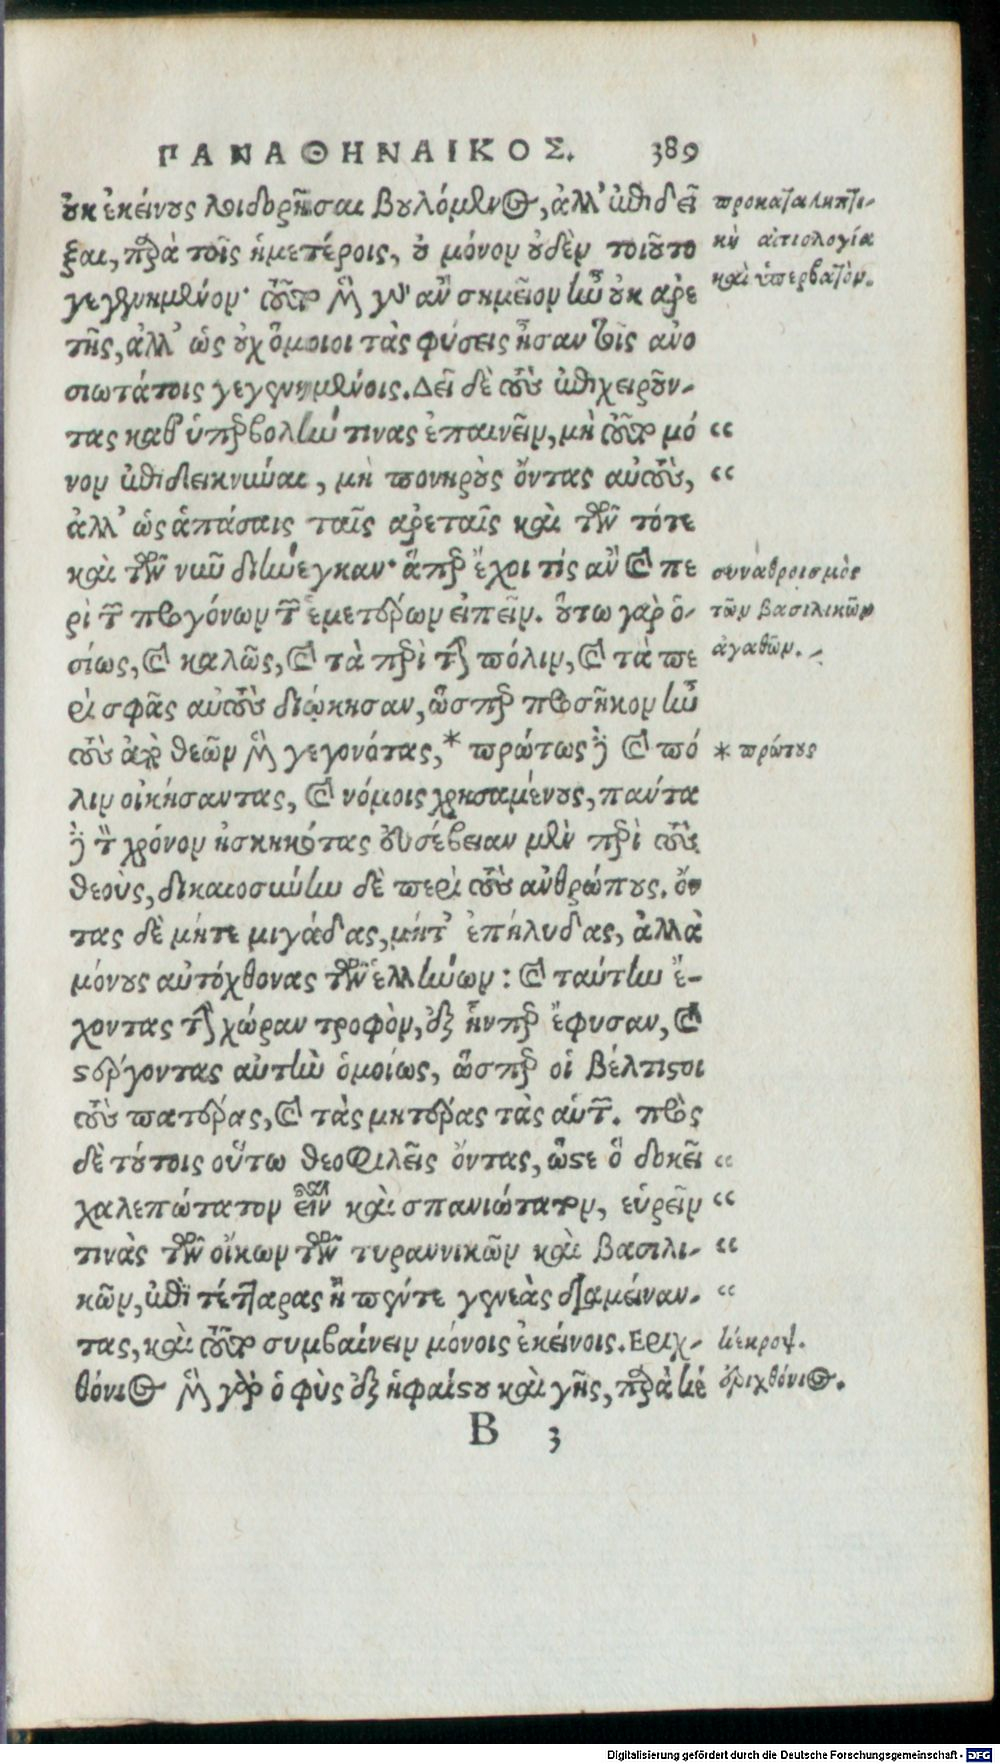 ΠΑΝΑΘΗΝΑΙΚΟΣ. 389
οὐκ ἐκείνους λοιδορῆσαι βουλόμενος, ἀλλ' ἐπιδεῖ
ξαι, παρὰ τοῖς ἡμετέροις, οὐ μόνον οὐδὲν τοιοῦτο
γεγενημένον· τοῦτο μὲν γὰρ ἂν σημεῖον ἦν οὐκ ἀρε
τῆς, ἀλλ' ὡς οὐχ ὅμοιοι τὰς φύσεις ἦσαν τοῖς ἀνο
σιωτάτοις γεγενημένοις. Δεῖ δὲ τοὺς ἐπιχειροῦν-
τας καθ' ὑπερβολήν τινας ἐπαινεῖν, μὴ τοῦτο μό “
νον ἐπιδεικνύναι, μὴ πονηροὺς ὄντας αὐτοὺς, “
ἀλλ' ὡς ἁπάσαις ταῖς ἀρεταῖς καὶ τῶν τότε
καὶ τῶν νῦν διήνεγκαν· ἅπερ ἔχοι τίς ἂν καὶ πε
ρὶ τῶν προγόνων τῶν ἡμετέρων εἰπεῖν. οὕτω γὰρ ὁ-
σίως, καὶ καλῶς, καὶ τὰ περὶ τὴν πόλιν, καὶ τὰ πε
ρὶ σφᾶς αὐτοὺς διῴκησαν, ὥσπερ προσῆκον ἦν
τοὺς ἀπὸ θεῶν μὲν γεγονότας, * πρώτως δὲ καὶ πό
λιν οἰκήσαντας, καὶ νόμοις χρησαμένους, πάντα
δὲ τὸν χρόνον ἠσκηκότας εὐσέβειαν μὲν περὶ τοὺς
θεοὺς, δικαιοσύνην δὲ περὶ τοὺς ἀνθρώπους. ὄν
τας δὲ μήτε μιγάδας, μήτ' ἐπήλυδας, ἀλλὰ
μόνους αὐτόχθονας τῶν ἑλλήνων: καὶ ταύτην ἔ-
χοντας τὴν χώραν τροφὸν, ἐξ ἧνπερ ἔφυσαν, καὶ
στέργοντας αὐτὴν ὁμοίως, ὥσπερ οἱ βέλτιστοι
τοὺς πατέρας, καὶ τὰς μητέρας τὰς αὑτῶν. πρὸς
δὲ τούτοις οὕτω θεοφιλεῖς ὄντας, ὥστε ὃ δοκεῖ “
χαλεπώτατον εἶναι καὶ σπανιώτατον, εὑρεῖν “
τινὰς τῶν οἴκων τῶν τυραννικῶν καὶ βασιλι- “
κῶν, ἐπὶ τέτταρας ἢ πέντε γενεὰς διαμείναν- “
τας, καὶ τοῦτο συμβαίνειν μόνοις ἐκείνοις. Εριχ-
θόνιος μὲν γὰρ ὁ φὺς ἐξ ἡφαίστου καὶ γῆς, παρὰ κέ
B 3
προκαταληπτι-
κὴ αἰτιολογία
καὶ ὑπερβατόν.
συναθροισμὸς
τῶν βασιλικῶν
ἀγαθῶν.
* πρώτους
κέκροψ.
ἐριχθόνιος.
Digitalisierung gefördert durch die Deutsche Forschungsgemeinschaft - DFG